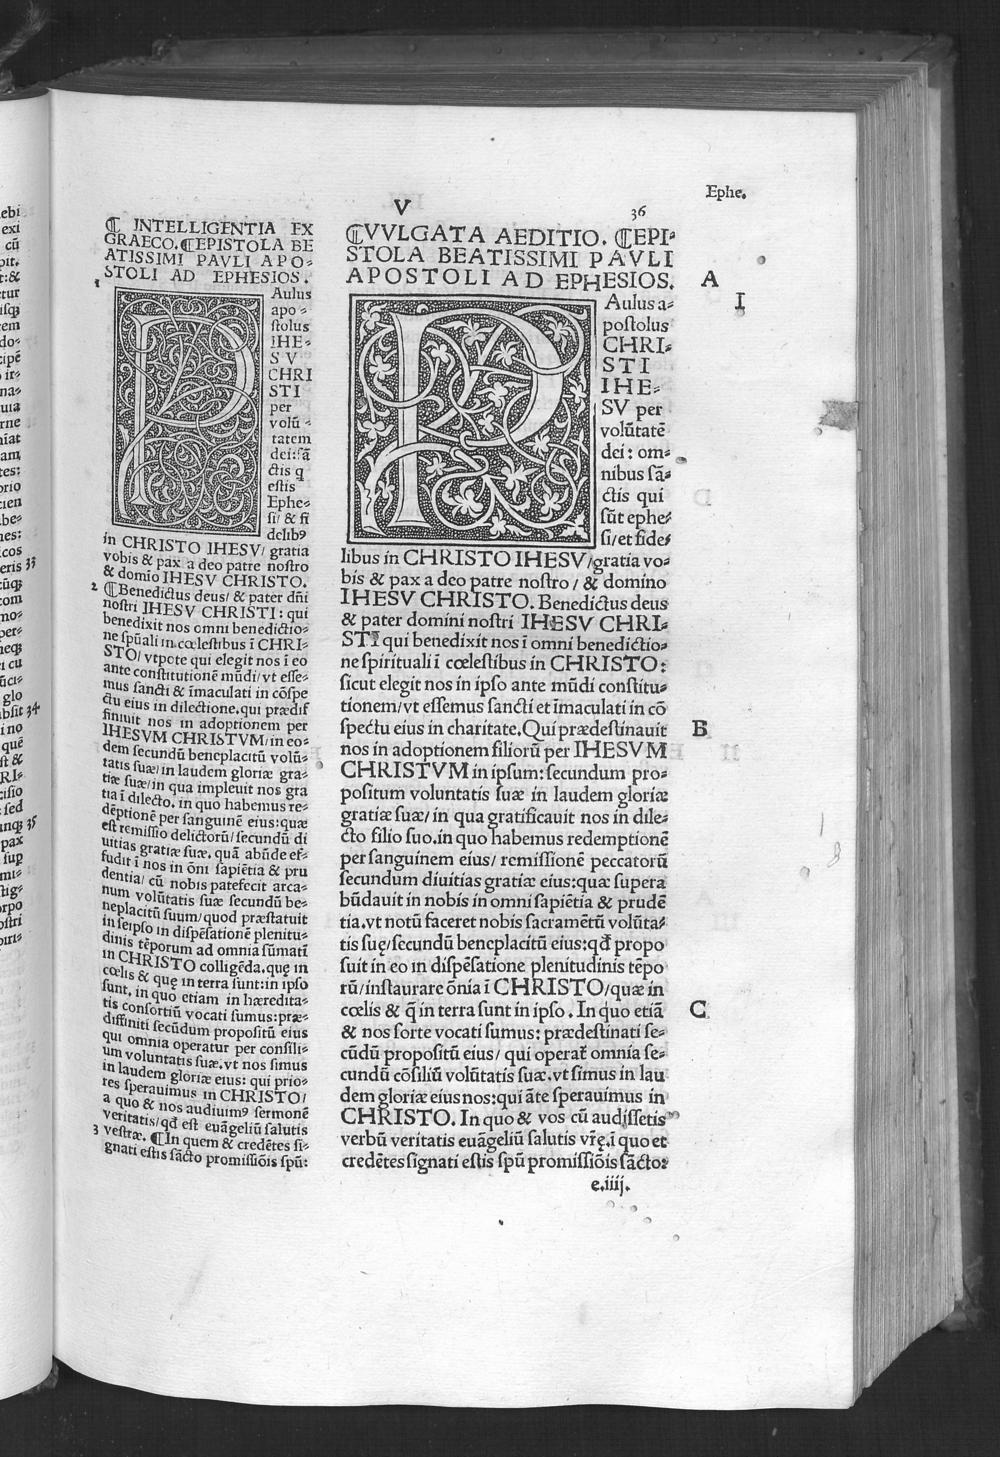 Ephe.
V
36
⸿ INTELLIGENTIA EX
GRAECO. ⸿EPISTOLA BE
ATISSIMI PAVLI APO⸗
STOLI AD EPHESIOS.
1
PAulus
apo⸗
stolus
IHE⸗
SV
CHRI
STI
per
volū⸗
tatem
dei: sā
ctis q
estis
Ephe⸗
si/ & fi
delibꝰ
in CHRISTO IHESV/ gratia
vobis & pax a deo patre nostro
& domio IHESV CHRISTO.
2 ⸿Benedictus deus/ & pater dn̄i
nostri IHESV CHRISTI: qui
benedixit nos omni benedictio⸗
ne spūali in cœlestibus ī CHRI⸗
STO/ vtpote qui elegit nos ī eo
ante constitutionē mūdi/ vt esse⸗
mus sancti & īmaculati in cōspe
ctu eius in dilectione. qui prædif
finiuit nos in adoptionem per
IHESVM CHRISTVM/ in eo⸗
dem secundū beneplacitū volū⸗
tatis suæ/ in laudem gloriæ gra⸗
tiæ suæ/ in qua impleuit nos gra
tia ī dilecto. in quo habemus re⸗
dēptionē per sanguinē eius: quæ
est remissio delictorū/ secundū di
uitias gratiæ suæ. quā abūde ef⸗
fudit ī nos in ōni sapiētia & pru
dentia/ cū nobis patefecit arca⸗
num volūtatis suæ secundū be⸗
neplacitū suum/ quod præstatuit
in seipso in dispēsatione plenitu⸗
dinis tēporum ad omnia sūmatī
in CHRISTO colligēda. quę in
cœlis & quę in terra sunt: in ipso
sunt, in quo etiam in hæredita⸗
tis consortiū vocati sumus: præ⸗
diffiniti secūdum propositū eius
qui omnia operatur per consili⸗
um voluntatis suæ. vt nos simus
in laudem gloriæ eius: qui prio⸗
res sperauimus in CHRISTO/
a quo & nos audiuimꝰ sermonē
veritatis/ qđ est euāgeliū salutis
3 vestræ. ⸿In quem & credētes si⸗
gnati estis sācto promissiōis spū:
⸿VVLGATA AEDITIO. ⸿EPI⸗
STOLA BEATISSIMI PAVLI
APOSTOLI AD EPHESIOS.
A
I
PAulus a⸗
postolus
CHRI⸗
STI
IHE⸗
SV per
volūtatē
dei: om⸗
nibus sā⸗
ctis qui
sūt ephe⸗
si/ et fide⸗
libus in CHRISTO IHESV/ gratia vo⸗
bis & pax a deo patre nostro/ & domino
IHESV CHRISTO. Benedictus deus
& pater domini nostri IHESV CHRI⸗
STI qui benedixit nos ī omni benedictio⸗
ne spirituali ī cœlestibus in CHRISTO:
sicut elegit nos in ipso ante mūdi constitu⸗
tionem/ vt essemus sancti et īmaculati in cō
spectu eius in charitate. Qui prædestinauit
B
nos in adoptionem filiorū per IHESVM
CHRISTVM in ipsum: secundum pro⸗
positum voluntatis suæ in laudem gloriæ
gratiæ suæ/ in qua gratificauit nos in dile⸗
cto filio suo. in quo habemus redemptionē
per sanguinem eius/ remissionē peccatorū
secundum diuitias gratiæ eius: quæ supera
būdauit in nobis in omni sapiētia & prudē
tia. vt notū faceret nobis sacramētū volūta⸗
tis suę/ secundū beneplacitū eius: qđ propo
suit in eo in dispēsatione plenitudinis tēpo
rū/ instaurare ōnia ī CHRISTO/ quæ in
cœlis & q̄ in terra sunt in ipso. In quo etiā
C
& nos sorte vocati sumus: prædestinati se⸗
cūdū propositū eius/ qui operať omnia se⸗
cundū cōsiliū volūtatis suæ. vt simus in lau
dem gloriæ eius nos: qui āte sperauimus in
CHRISTO. In quo & vos cū audissetis
verbū veritatis euāgeliū salutis vr̄ę. ī quo et
credētes signati estis spū promissiōis sācto:
e.iiij.